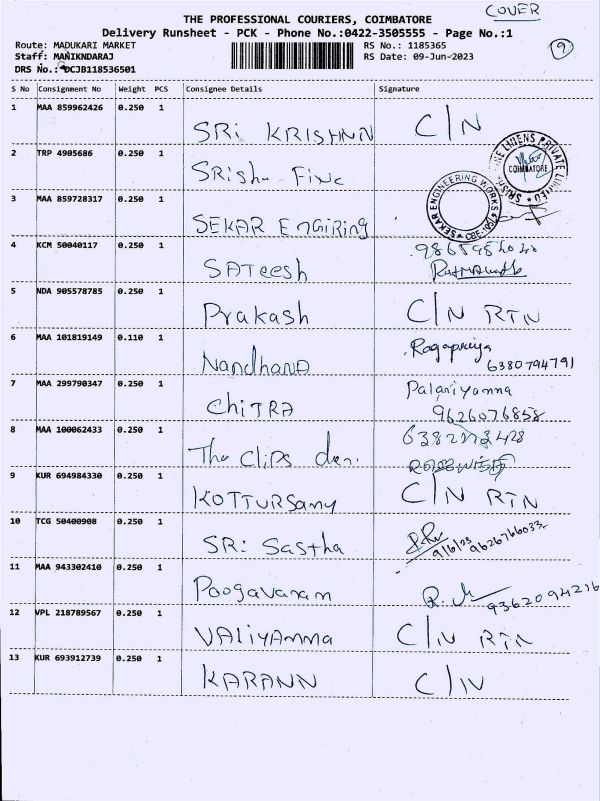 COVER
THE PROFESSIONAL COURIERS, COIMBATORE
Delivery Runsheet - PCK - Phone No.:0422-3505555 - Page No.:1
Route: MADUKARI MARKET RS No.: 1185365
Staff: MANIKNDARAJ RS Date: 09-Jun-2023
DRS No.: DCJB118536501
9
S No Consignment No Weight PCS Consignee Details Signature
1 MAA 859962426 0.250 1 SRi KRISHNN C/N
2 TRP 4905686 0.250 1 SRishu Fine
COIMBATORE
3 MAA 859728317 0.250 1 SEKAR EnGiRing
SEKAR ENGINEERING WORKS
4 KCM 50040117 0.250 1 SATeesh
5 NDA 905578785 0.250 1 Prakash C/N RTN
6 MAA 101819149 0.110 1 Nandhana Ragapriya
6380794791
7 MAA 299790347 0.250 1 ChiTRA Palaniyamma
9626076858
8 MAA 100062433 0.250 1 The Clips den.
9 KUR 694984330 0.250 1 KOTTURSamy C/N RTN
10 TCG 50400908 0.250 1 SRi Sastha
9/6/23 9626766033
11 MAA 943302410 0.250 1 Poogavanam
9362094216
12 VPL 218789567 0.250 1 VALiyAmma C/N RTN
13 KUR 693912739 0.250 1 KARANN C/N